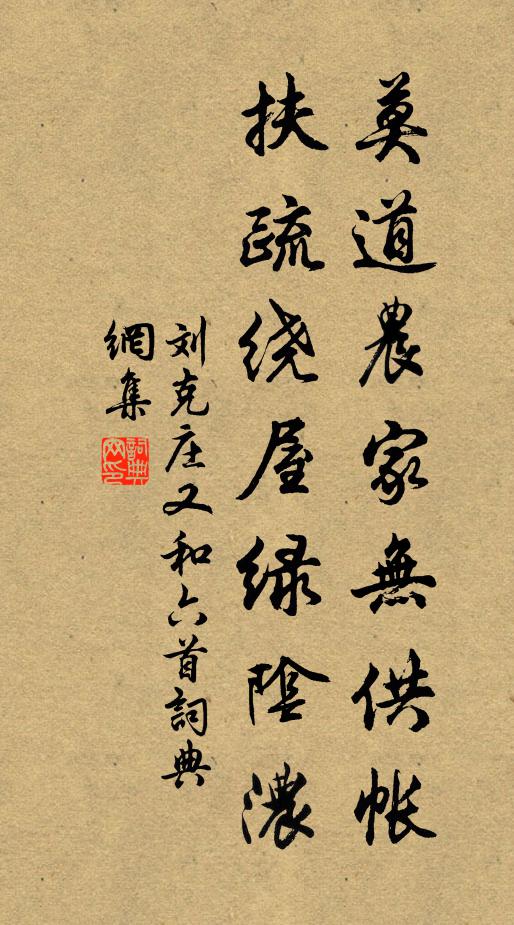 莫道農家無供帳
扶疏绕屋緑陰濃
刘克庄又和六首詞典
網集
詞典
网印